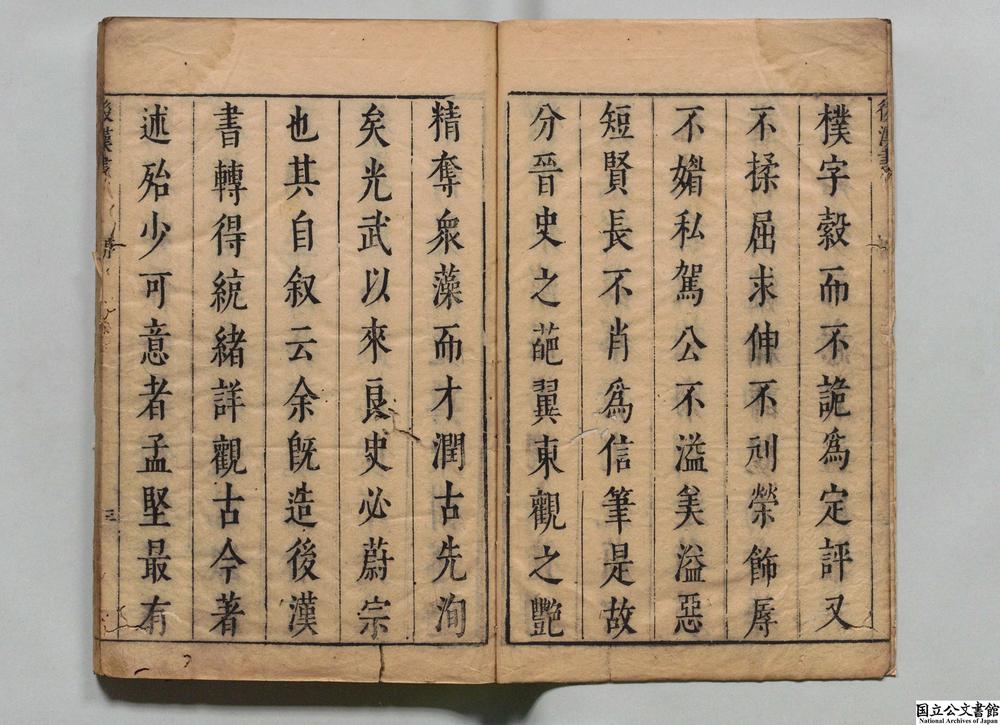 樸字縠而不詭為定評又
不揉屈求伸不刓榮飾辱
不媚私駕公不溢美溢惡
短賢長不肖為信筆是故
分晉史之葩翼東觀之艷
精奪衆藻而才潤古先洵
矣光武以來良史必蔚宗
也其自叙云余既造後漢
書轉得統緒詳觀古今著
述殆少可意者孟堅最有
後漢書
後漢書
三
国立公文書館
National Archives of Japan